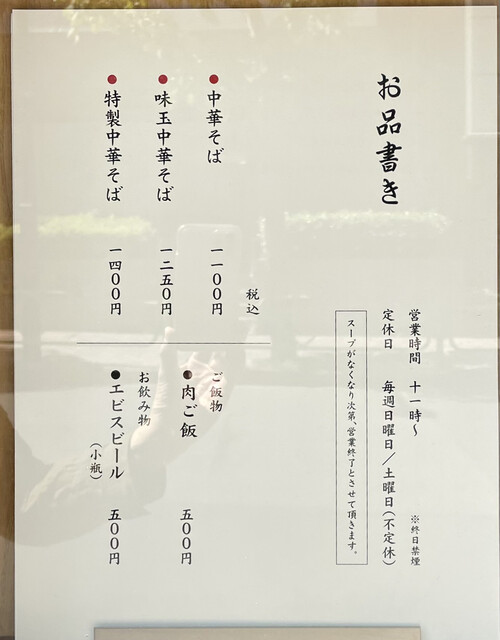 お品書き
営業時間 十一時～ ※終日禁煙
定休日 毎週日曜日／土曜日（不定休）
スープがなくなり次第、営業終了とさせて頂きます。
税込
●中華そば 一一〇〇円
●味玉中華そば 一二五〇円
●特製中華そば 一四〇〇円
ご飯物
●肉ご飯 五〇〇円
お飲み物
●エビスビール（小瓶） 五〇〇円